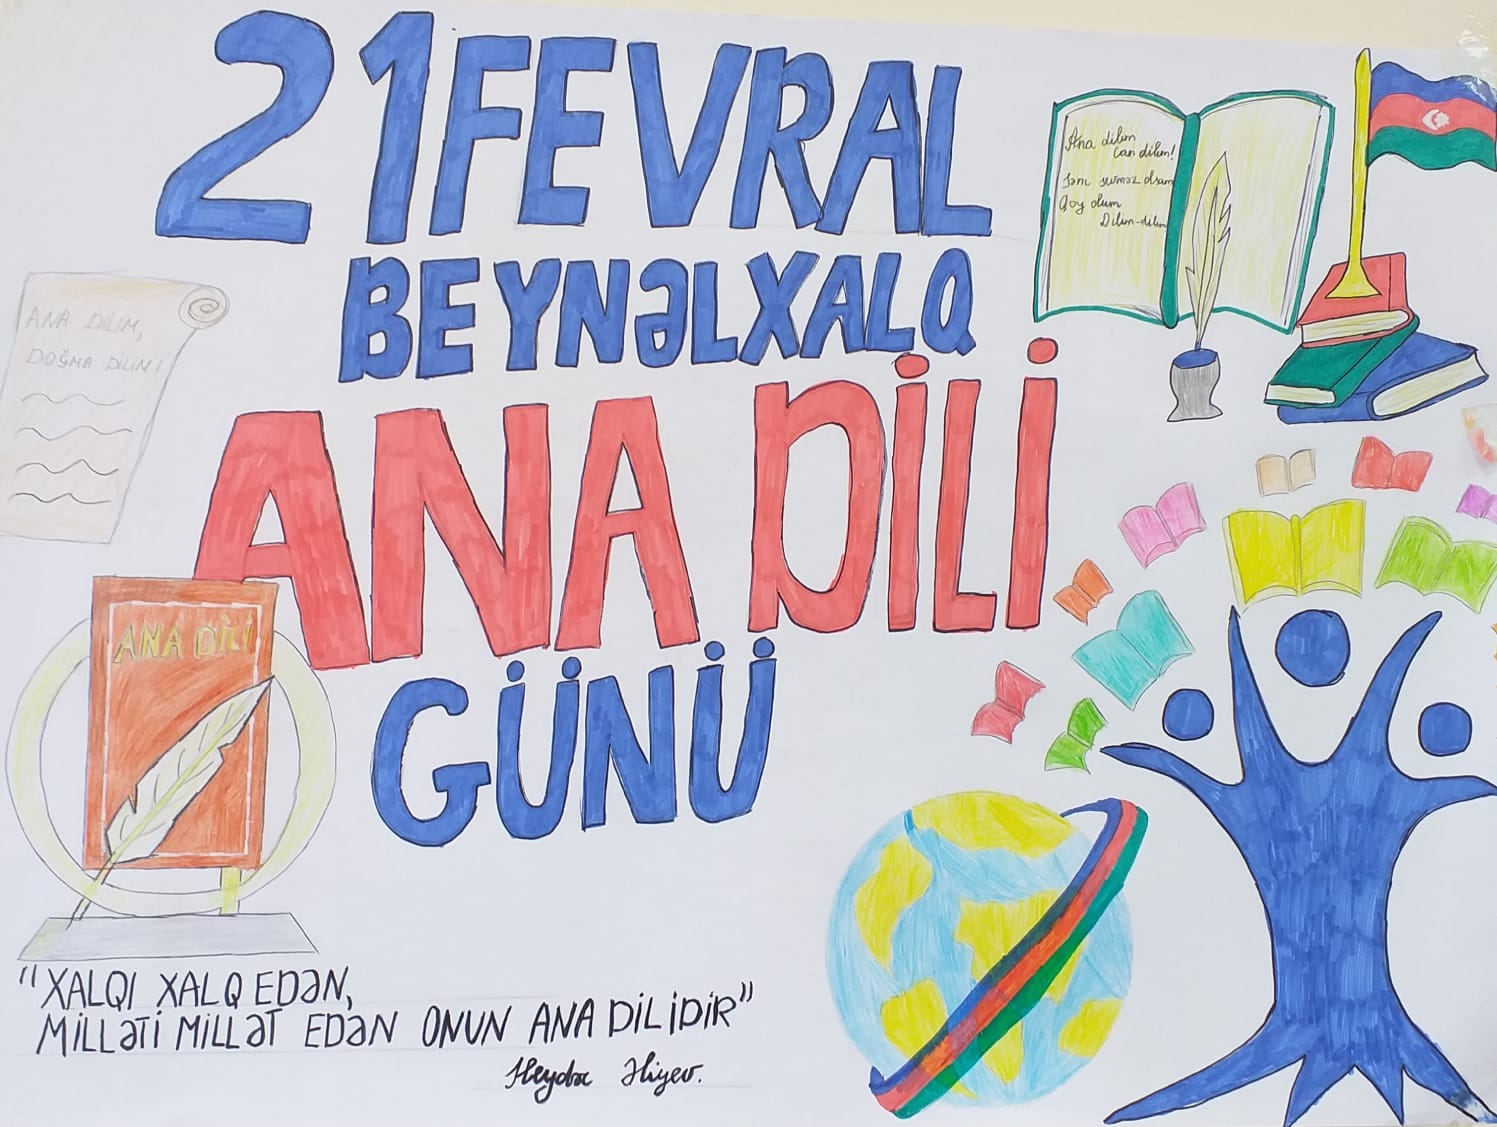 21 FEVRAL
BEYNƏLXALQ
ANA DİLİ
GÜNÜ
Ana dilim
Can dilim!
Səni sevməz olsam
Qoy olum
Dilim-dilim
ANA DİLİM,
DOĞMA DİLİM!
ANA DİLİ
"XALQI XALQ EDƏN,
MİLLƏTİ MİLLƏT EDƏN ONUN ANA DİLİDİR"
Heydər Əliyev.